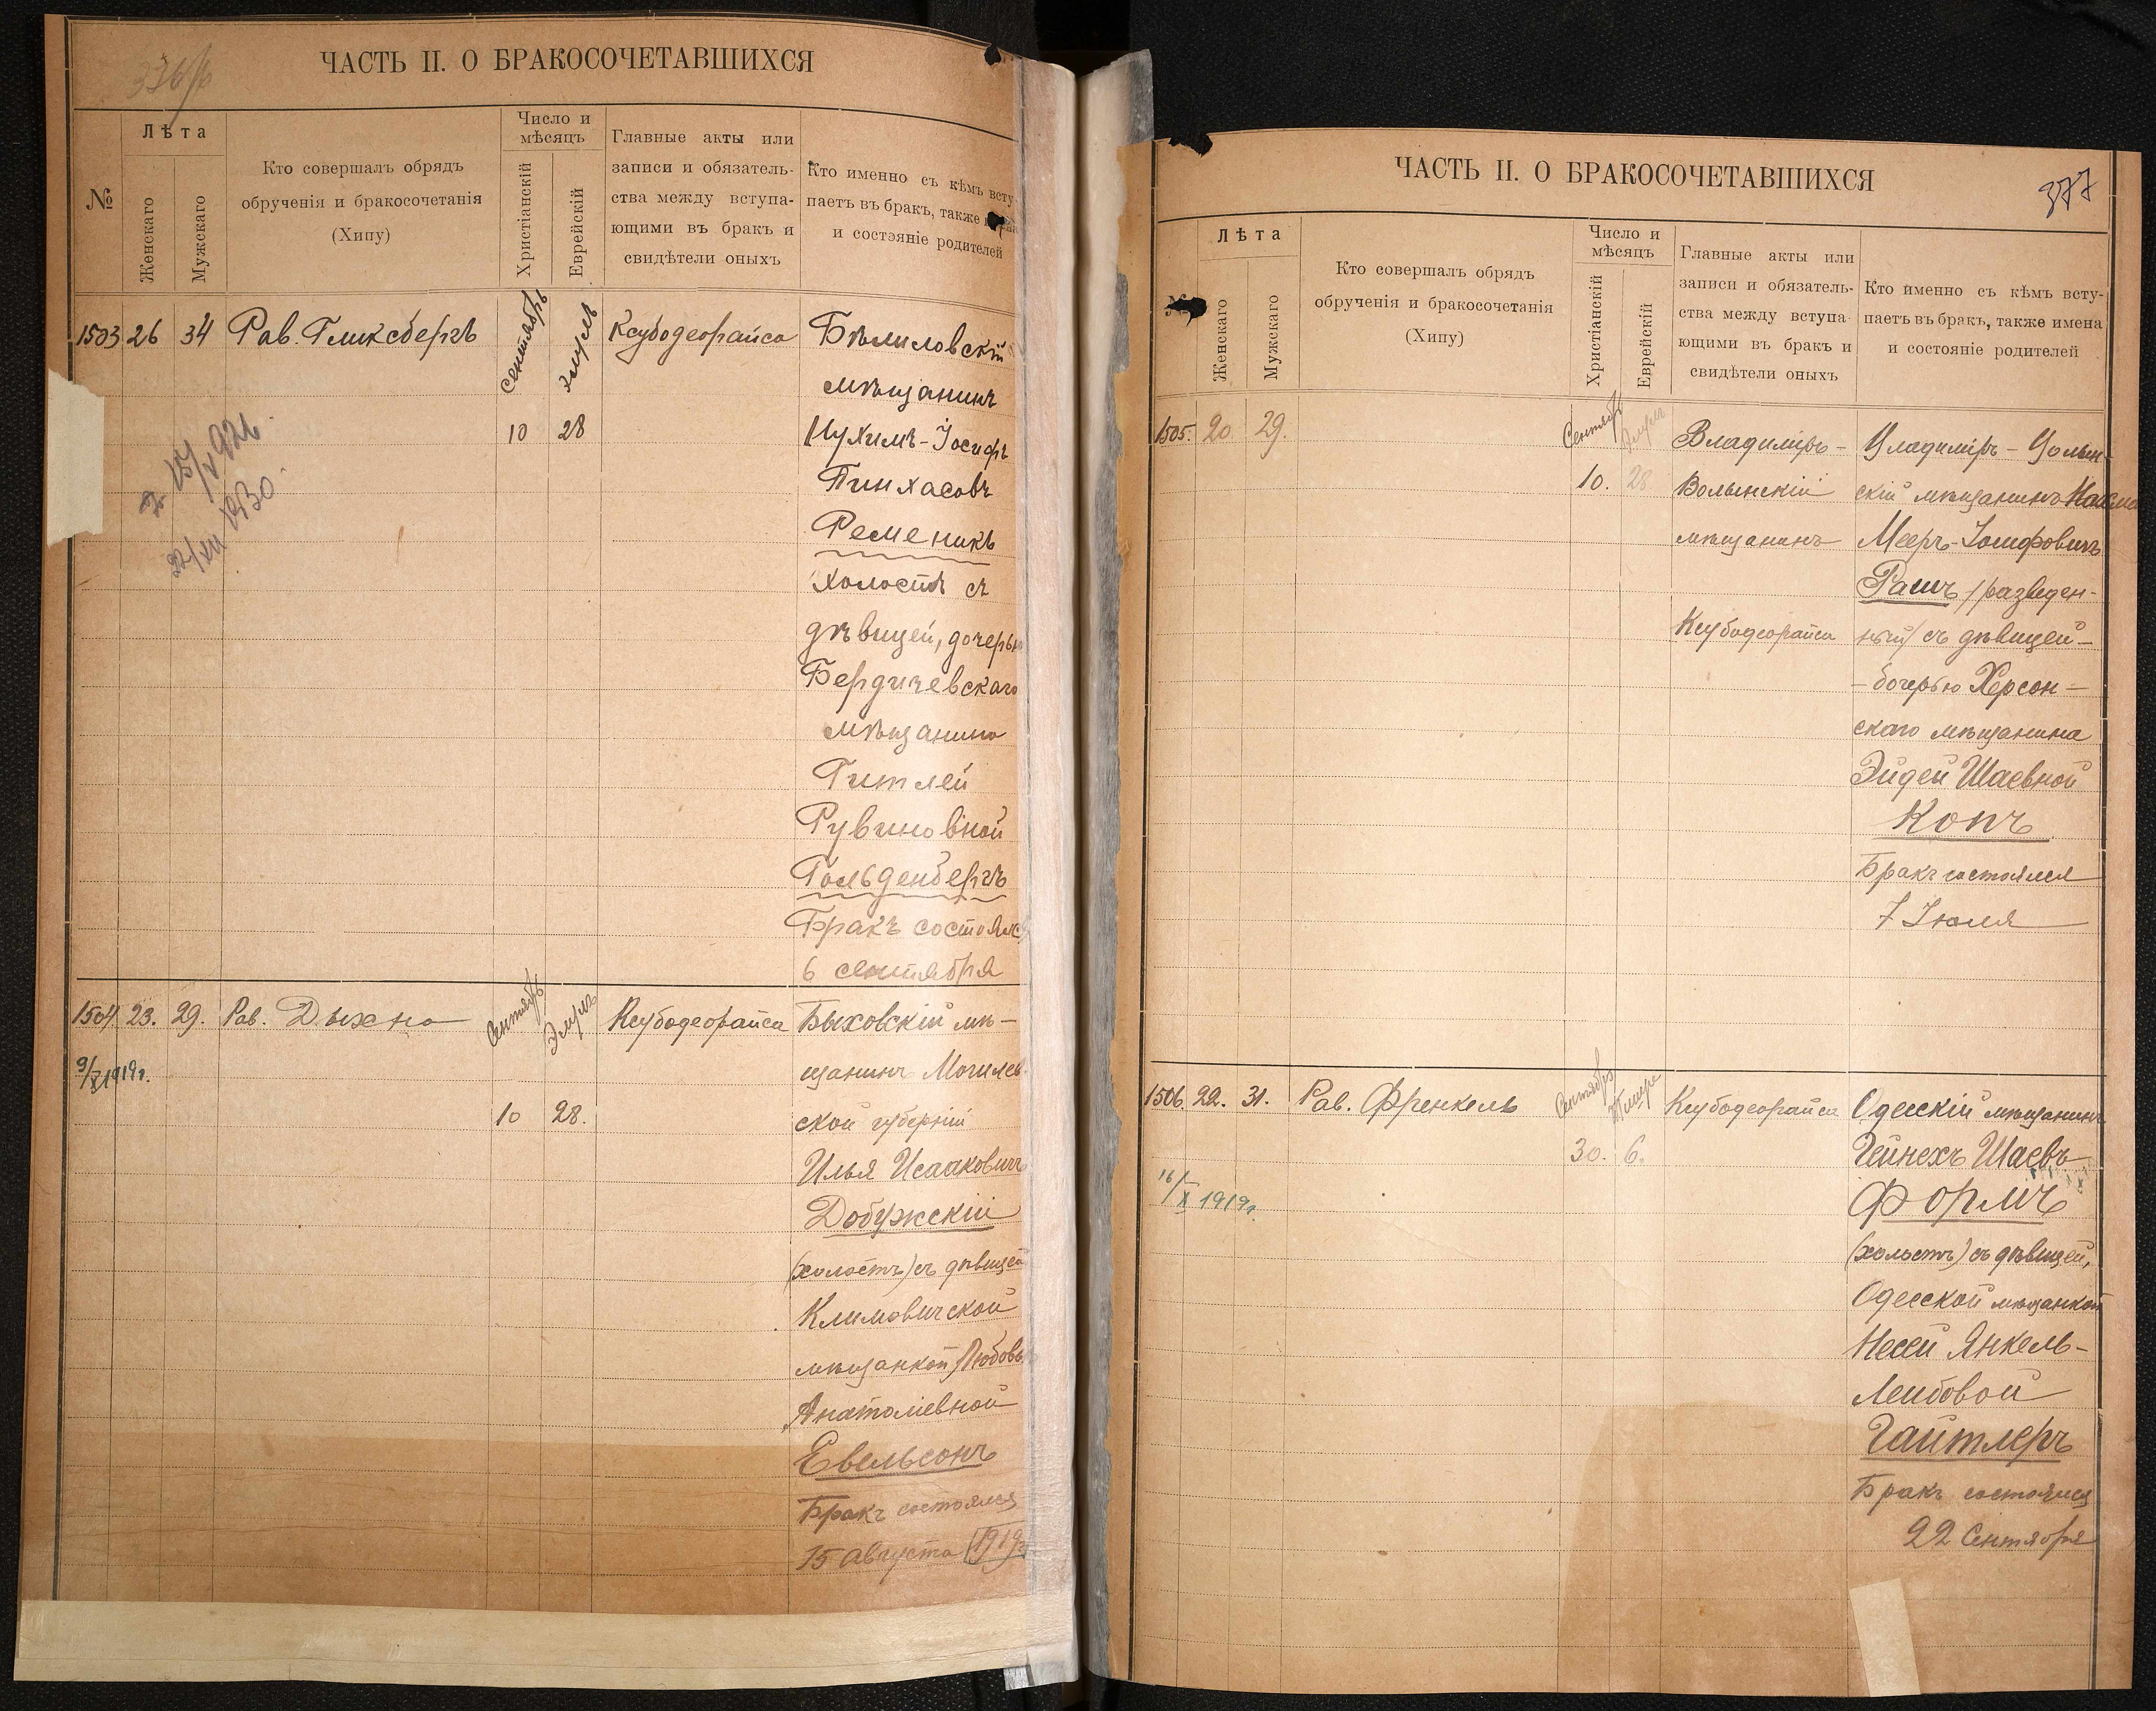 ЧАСТЬ II. О БРАКОСОЧЕТАВШИХСЯ
№
Лѣта
Женскаго
Мужскаго
Кто совершалъ обрядъ
обрученія и бракосочетанія
(Хипу)
Число и
мѣсяцъ
Христіанскій
Еврейскій
Главные акты или
записи и обязатель-
ства между вступа-
ющими въ бракъ и
свидѣтели оныхъ
Кто именно съ кѣмъ всту
паетъ въ бракъ, также
и состояніе родителей
1503 26 34 Рав. Гликсбергъ сентябрь элулъ Ксубодеорайса Бѣлиловскій
мѣщанинъ
10 28 Нухимъ-Іосифъ
Пинхасовъ
Ременикъ
холостъ съ
дѣвицей, дочерью
Бердичевскаго
мѣщанина
Гитлей
Рувиновной
Гольденбергъ
Бракъ состоялся
6 сентября
22/XII 1930
1504 23. 29. Рав. Дыхно Сентябрь Элулъ Ксубодеорайса Быховскій мѣ-
9/X 1919г.
щанинъ Могилев
10 28. ской губерніи
Илья Исааковичъ
Добужскій
(холостъ) съ дѣвицей
Климовичской
мѣщанкой Любовь
Анатоліевной
Евельсонъ
Бракъ состоялся
15 августа (1919
ЧАСТЬ II. О БРАКОСОЧЕТАВШИХСЯ
377
№
Лѣта
Женскаго
Мужскаго
Кто совершалъ обрядъ
обрученія и бракосочетанія
(Хипу)
Число и
мѣсяцъ
Христіанскій
Еврейскій
Главные акты или
записи и обязатель-
ства между вступа-
ющими въ бракъ и
свидѣтели оныхъ
Кто именно съ кѣмъ всту-
паетъ въ бракъ, также имена
и состояніе родителей
1505. 20. 29. Сентябрь Элулъ Владиміръ- Владиміръ-Волын-
10. 28. Волынскій скій мѣщанинъ
мѣщанинъ Мееръ-Іосифовичъ
Рашъ /разведен-
Ксубодеорайса ный/ съ дѣвицей-
-дочерью Херсон-
скаго мѣщанина
Эйдей Шаевной
Копъ
Бракъ состоялся
7 Іюля
1506. 22. 31. Рав. Френкель Сентябрь Тишре Ксубодеорайса Одесскій мѣщанинъ
30. 6. Гейнехъ Шаевъ
16/X 1919г.
Формъ
(холостъ) съ дѣвицей,
Одесской мѣщанкой
Несей Янкель-
Лейбовой
Гайтлеръ
Бракъ состоялся
22 Сентября